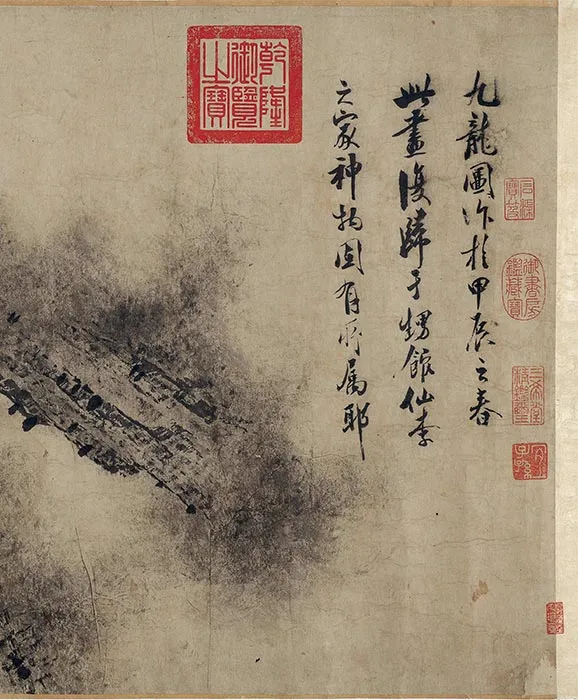 石渠寶笈
御書房鑑藏寶
三希堂精鑑璽
宜子孫
九龍圖作於甲辰之春
此畫復歸于甥館仙李
之家神物固有所屬耶
乾隆御覽之寶